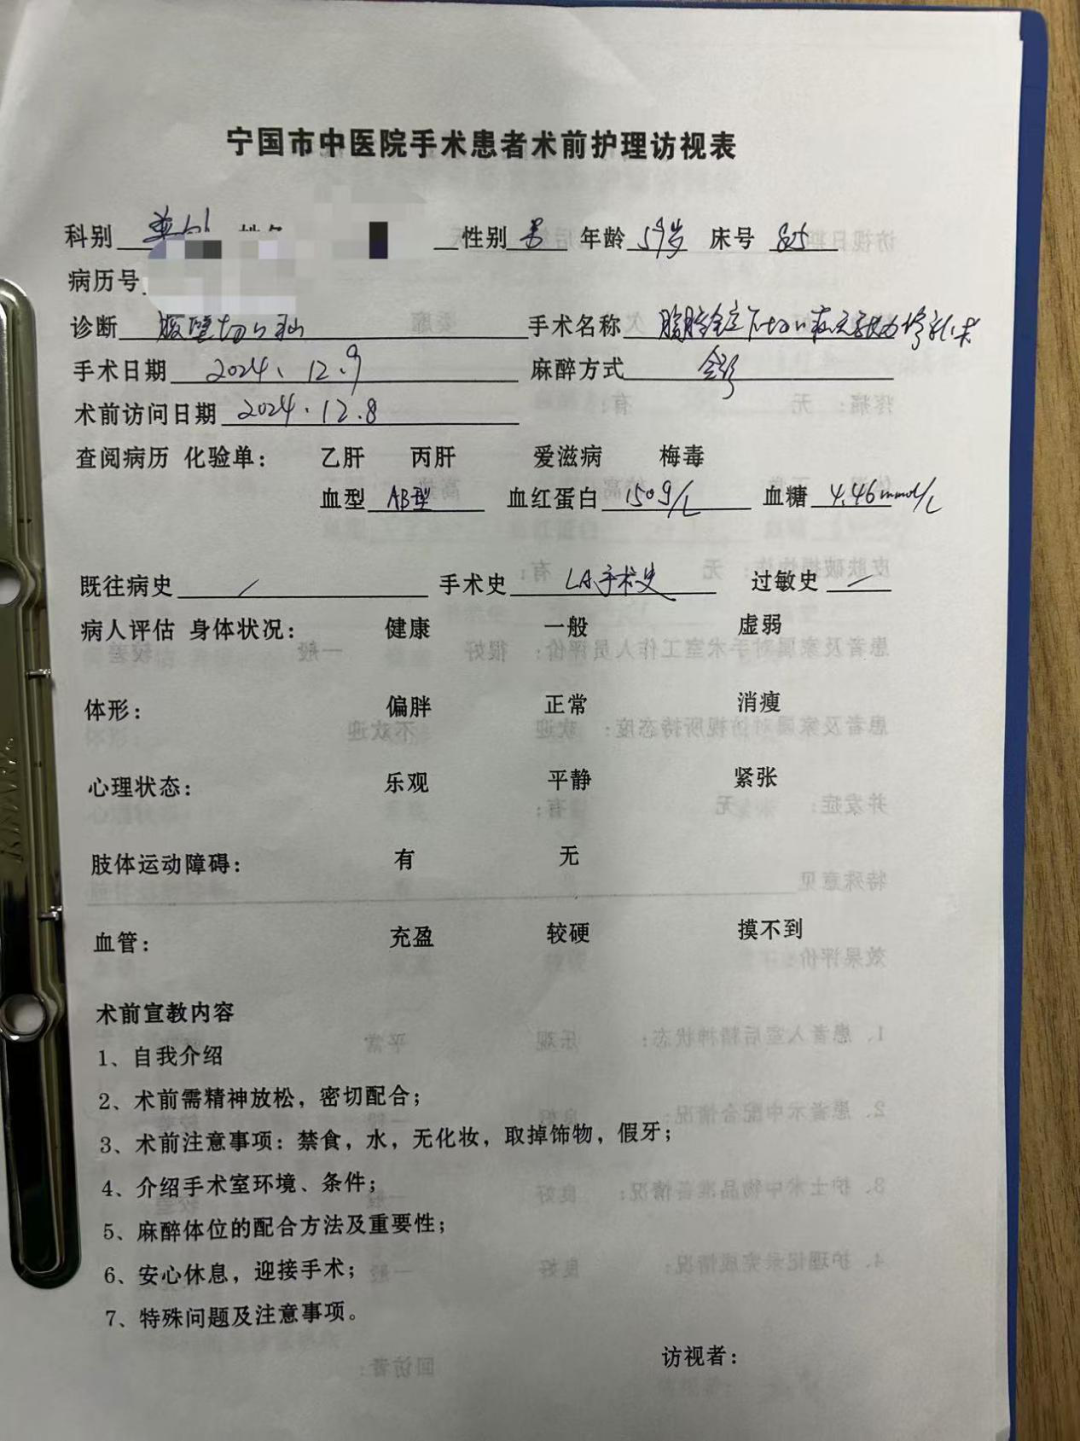 宁国市中医院手术患者术前护理访视表
科别 性别 男 年龄 59岁 床号 825
病历号
诊断 腹壁切口疝 手术名称 腹腔镜下切口疝无张力修补术
手术日期 2024、12.9 麻醉方式 全麻
术前访问日期 2024.12.8
查阅病历 化验单： 乙肝 丙肝 爱滋病 梅毒
血型 AB型 血红蛋白 150g/L 血糖 4.46mmol/L
既往病史 / 手术史 LA手术史 过敏史 —
病人评估 身体状况： 健康 一般 虚弱
体形： 偏胖 正常 消瘦
心理状态： 乐观 平静 紧张
肢体运动障碍： 有 无
血管： 充盈 较硬 摸不到
术前宣教内容
1、自我介绍
2、术前需精神放松，密切配合；
3、术前注意事项：禁食，水，无化妆，取掉饰物，假牙；
4、介绍手术室环境、条件；
5、麻醉体位的配合方法及重要性；
6、安心休息，迎接手术；
7、特殊问题及注意事项。
访视者：